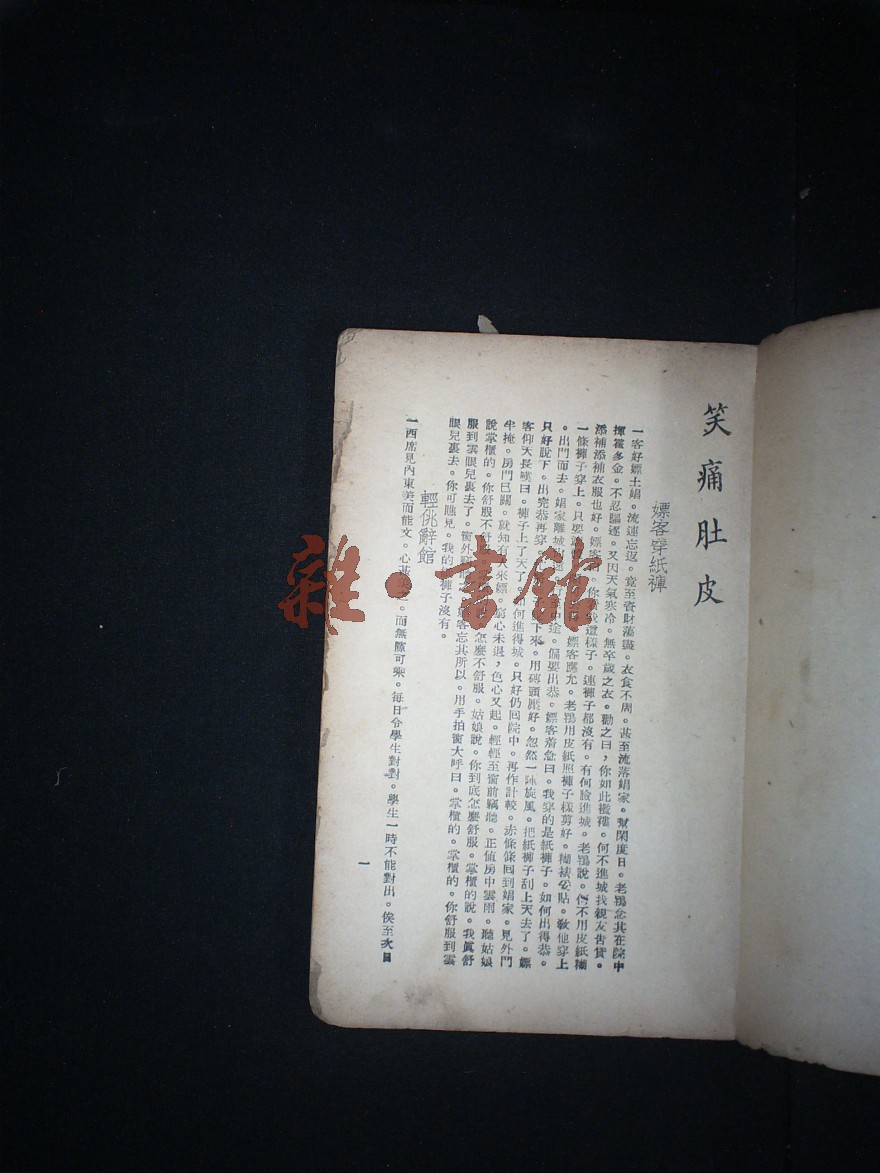 笑痛肚皮
嫖客穿紙褲
一客好嫖土娼。流連忘返。竟至資財蕩盡。衣食不周。甚至流落娼家。幫閑度日。老鴇念其在院中
揮霍多金。不忍驅逐。又因天氣寒冷。無卒歲之衣。勸之曰,你如此襤褸。何不進城找親友告貸。
添補添補衣服也好。嫖客 你看我這樣子。連褲子都沒有。有何臉進城。老鴇說。何不用皮紙糊
一條褲子穿上。只要 嫖客應允。老鴇用皮紙照褲子樣剪好。糊裱妥貼。敎他穿上
。出門而去。娼家離城 中途。偏要出恭。嫖客着急曰。我穿的是紙褲子。如何出得恭。
只好脫下。出完恭再穿 下來。用磚頭壓好。忽然一陣旋風。把紙褲子刮上天去了。嫖
客仰天長嘆曰。褲子上了天了。如何進得城。只好仍回院中。再作計較。赤條條回到娼家。見外門
半掩。房門已關。就知有 來嫖。窮心未退,色心又起。輕輕至窗前竊聽。正值房中雲雨。聽姑娘
說掌櫃的。你舒服不舒 怎麼不舒服。姑娘說。你到底怎麼舒服。掌櫃的說。我眞舒
服到雲眼兒裏去了。窗外 客忘其所以。用手拍窗大呼曰。掌櫃的。掌櫃的。你舒服到雲
眼兒裏去。你可瞧見。我的紙褲子沒有。
輕佻辭館
一西席見內東美而能文。心甚 。而無隙可乘。每日令學生對對。學生一時不能對出。俟至次日
一
雜·書館